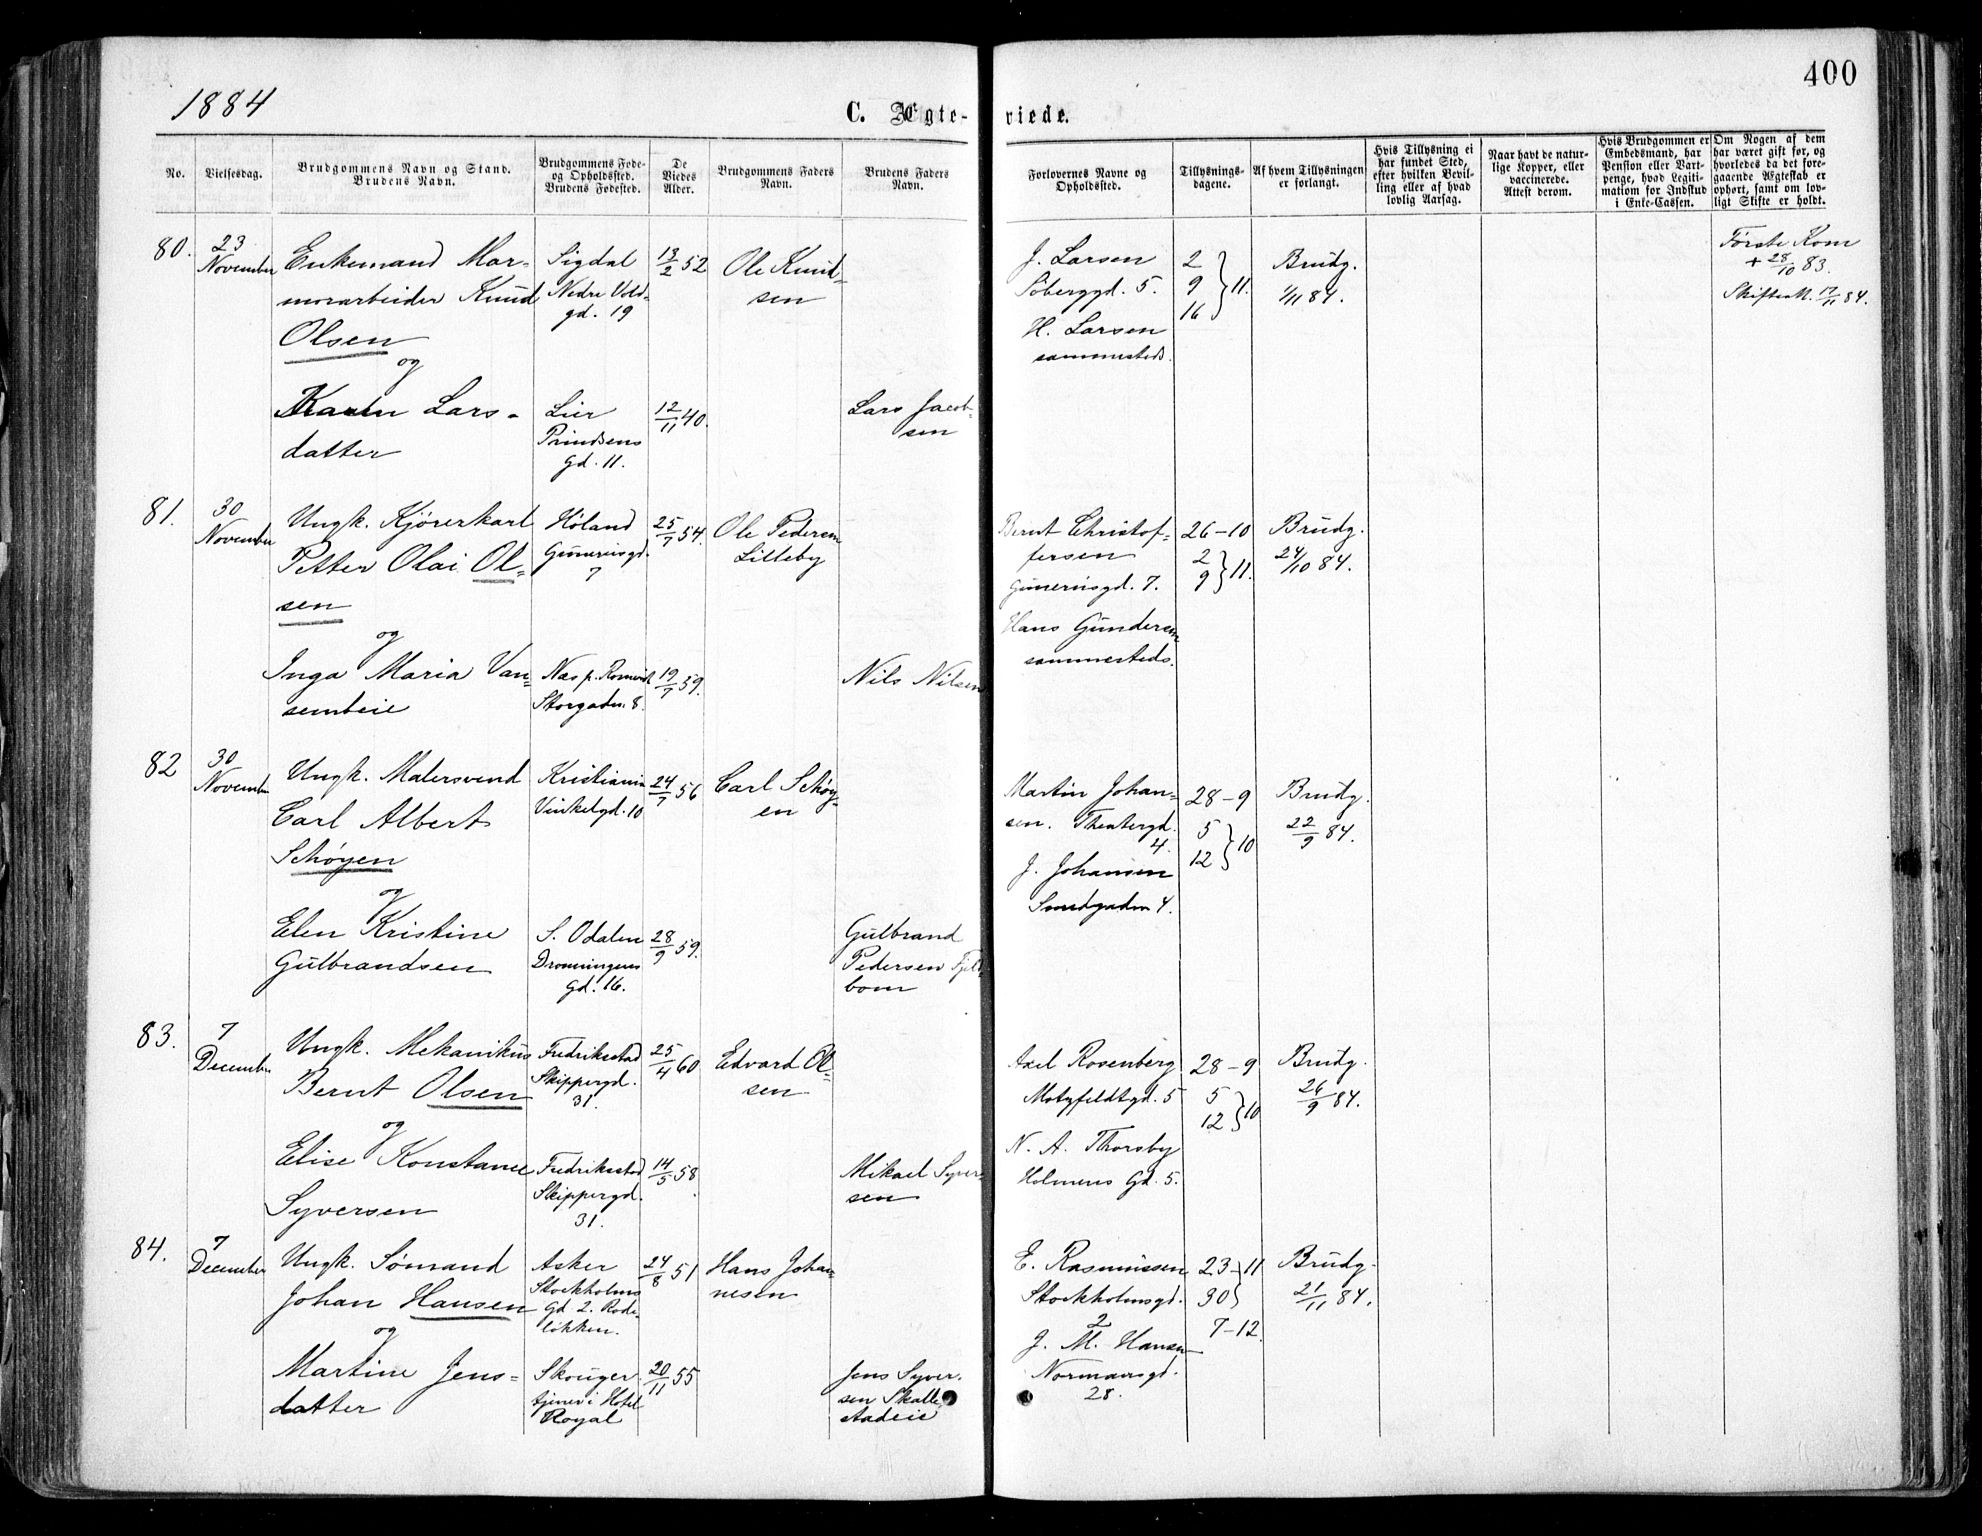 400
1884
C. Ægte-viede.
No.
Vielsesdag.
Brudgommens Navn og Stand.
Brudens Navn.
Brudgommens Føde-
og Opholdssted.
Brudens Fødested.
De
Viedes
Alder.
Brudgommens Faders
Navn.
Brudens Faders
Navn.
Forlovernes Navne og
Opholdssted.
Tillysnings-
dagene.
Af hvem Tillysningen
er forlangt.
Hvis Tillysning ei
har fundet Sted,
efter hvilken Bevil-
ling eller af hvad
lovlig Aarsag.
Naar havt de natur-
lige Kopper, eller
vaccinerede.
Attest derom.
Hvis Brudgommen er
Embedsmand, har
Pension eller Vart-
penge, hvad Legiti-
mation for Indskud
i Enke-Cassen.
Om Nogen af dem
har været gift før, og
hvorledes da det fore-
gaaende Ægteskab er
ophørt, samt om lov-
ligt Skifte er holdt.
80.
23
November
Enkemand Mar-
morarbeider Knud
Olsen
og
Karen Lars-
datter
Sigdal
Nedre Vold-
gd. 19
Lier
Prindsens
Gd. 11.
13/2 52
12/11 40.
Ole Knud-
sen
Lars Jacob-
sen
J. Larsen
Søberggd. 5.
H. Larsen
sammesteds.
2
9
16
} 11.
Brudg.
1/11 84.
Første Kone
+ 28/10 83.
Skifteatt. 17/11 84.
81.
30
November
Ungk. Kjørerkarl
Petter Olai Ol-
sen
og
Inga Maria Van-
sembeie
Høland
Grünersgd.
7
Næs p. Romerik
Storgaden. 8.
25/7 54.
19/7 59.
Ole Pedersen
Lilleby
Nils Nilsen
Bernt Christof-
fersen
Grünersgd. 7.
Hans Gundersen
sammesteds.
26-10
2
9
} 11.
Brudg.
24/10 84.
82
30
November
Ungk. Malersvend
Carl Albert
Schøyen
og
Elen Kristine
Gulbrandsen
Kristiania
Vinkelgd. 10
S. Odalen
Dronningens
Gd. 16.
24/7 56
28/9 59.
Carl Schøy-
en
Gulbrand
Pedersen
bom
Martin Johan-
sen. Theatergd.
4.
J. Johansen
Smedgaden 4.
28-9
5
12
} 10
Brudg.
22/9 84.
83.
7
December
Ungk. Mekanikus
Bernt Olsen
og
Elise Konstance
Syversen
Fredriksstad
Skippergd.
31.
Fredriksstad
Skippergd.
31.
25/4 60
14/5 58
Edvard Ol-
sen
Mikael Syver-
sen
Axel Rosenberg
Motzfeldtgd. 5
N. A. Thorsby
Holmens Gd. 5.
28-9
5
12
} 10
Brudg.
26/9 84.
84.
7
December
Ungk. Sømand
Johan Hansen
og
Martine Jens-
datter
Asker
Stockholms
Gd 2. Rode-
løkken.
Skouger
tjener i Hotel
Royal
24/8 51
20/11 55
Hans Johan-
nesen
Jens Syver-
sen Skalle-
stadeie
E. Rasmussen
Stockholmsgd.
2
J. M. Hansen
Normansgd.
28.
23-11
30}
7-12.
Brudg.
21/11 84.